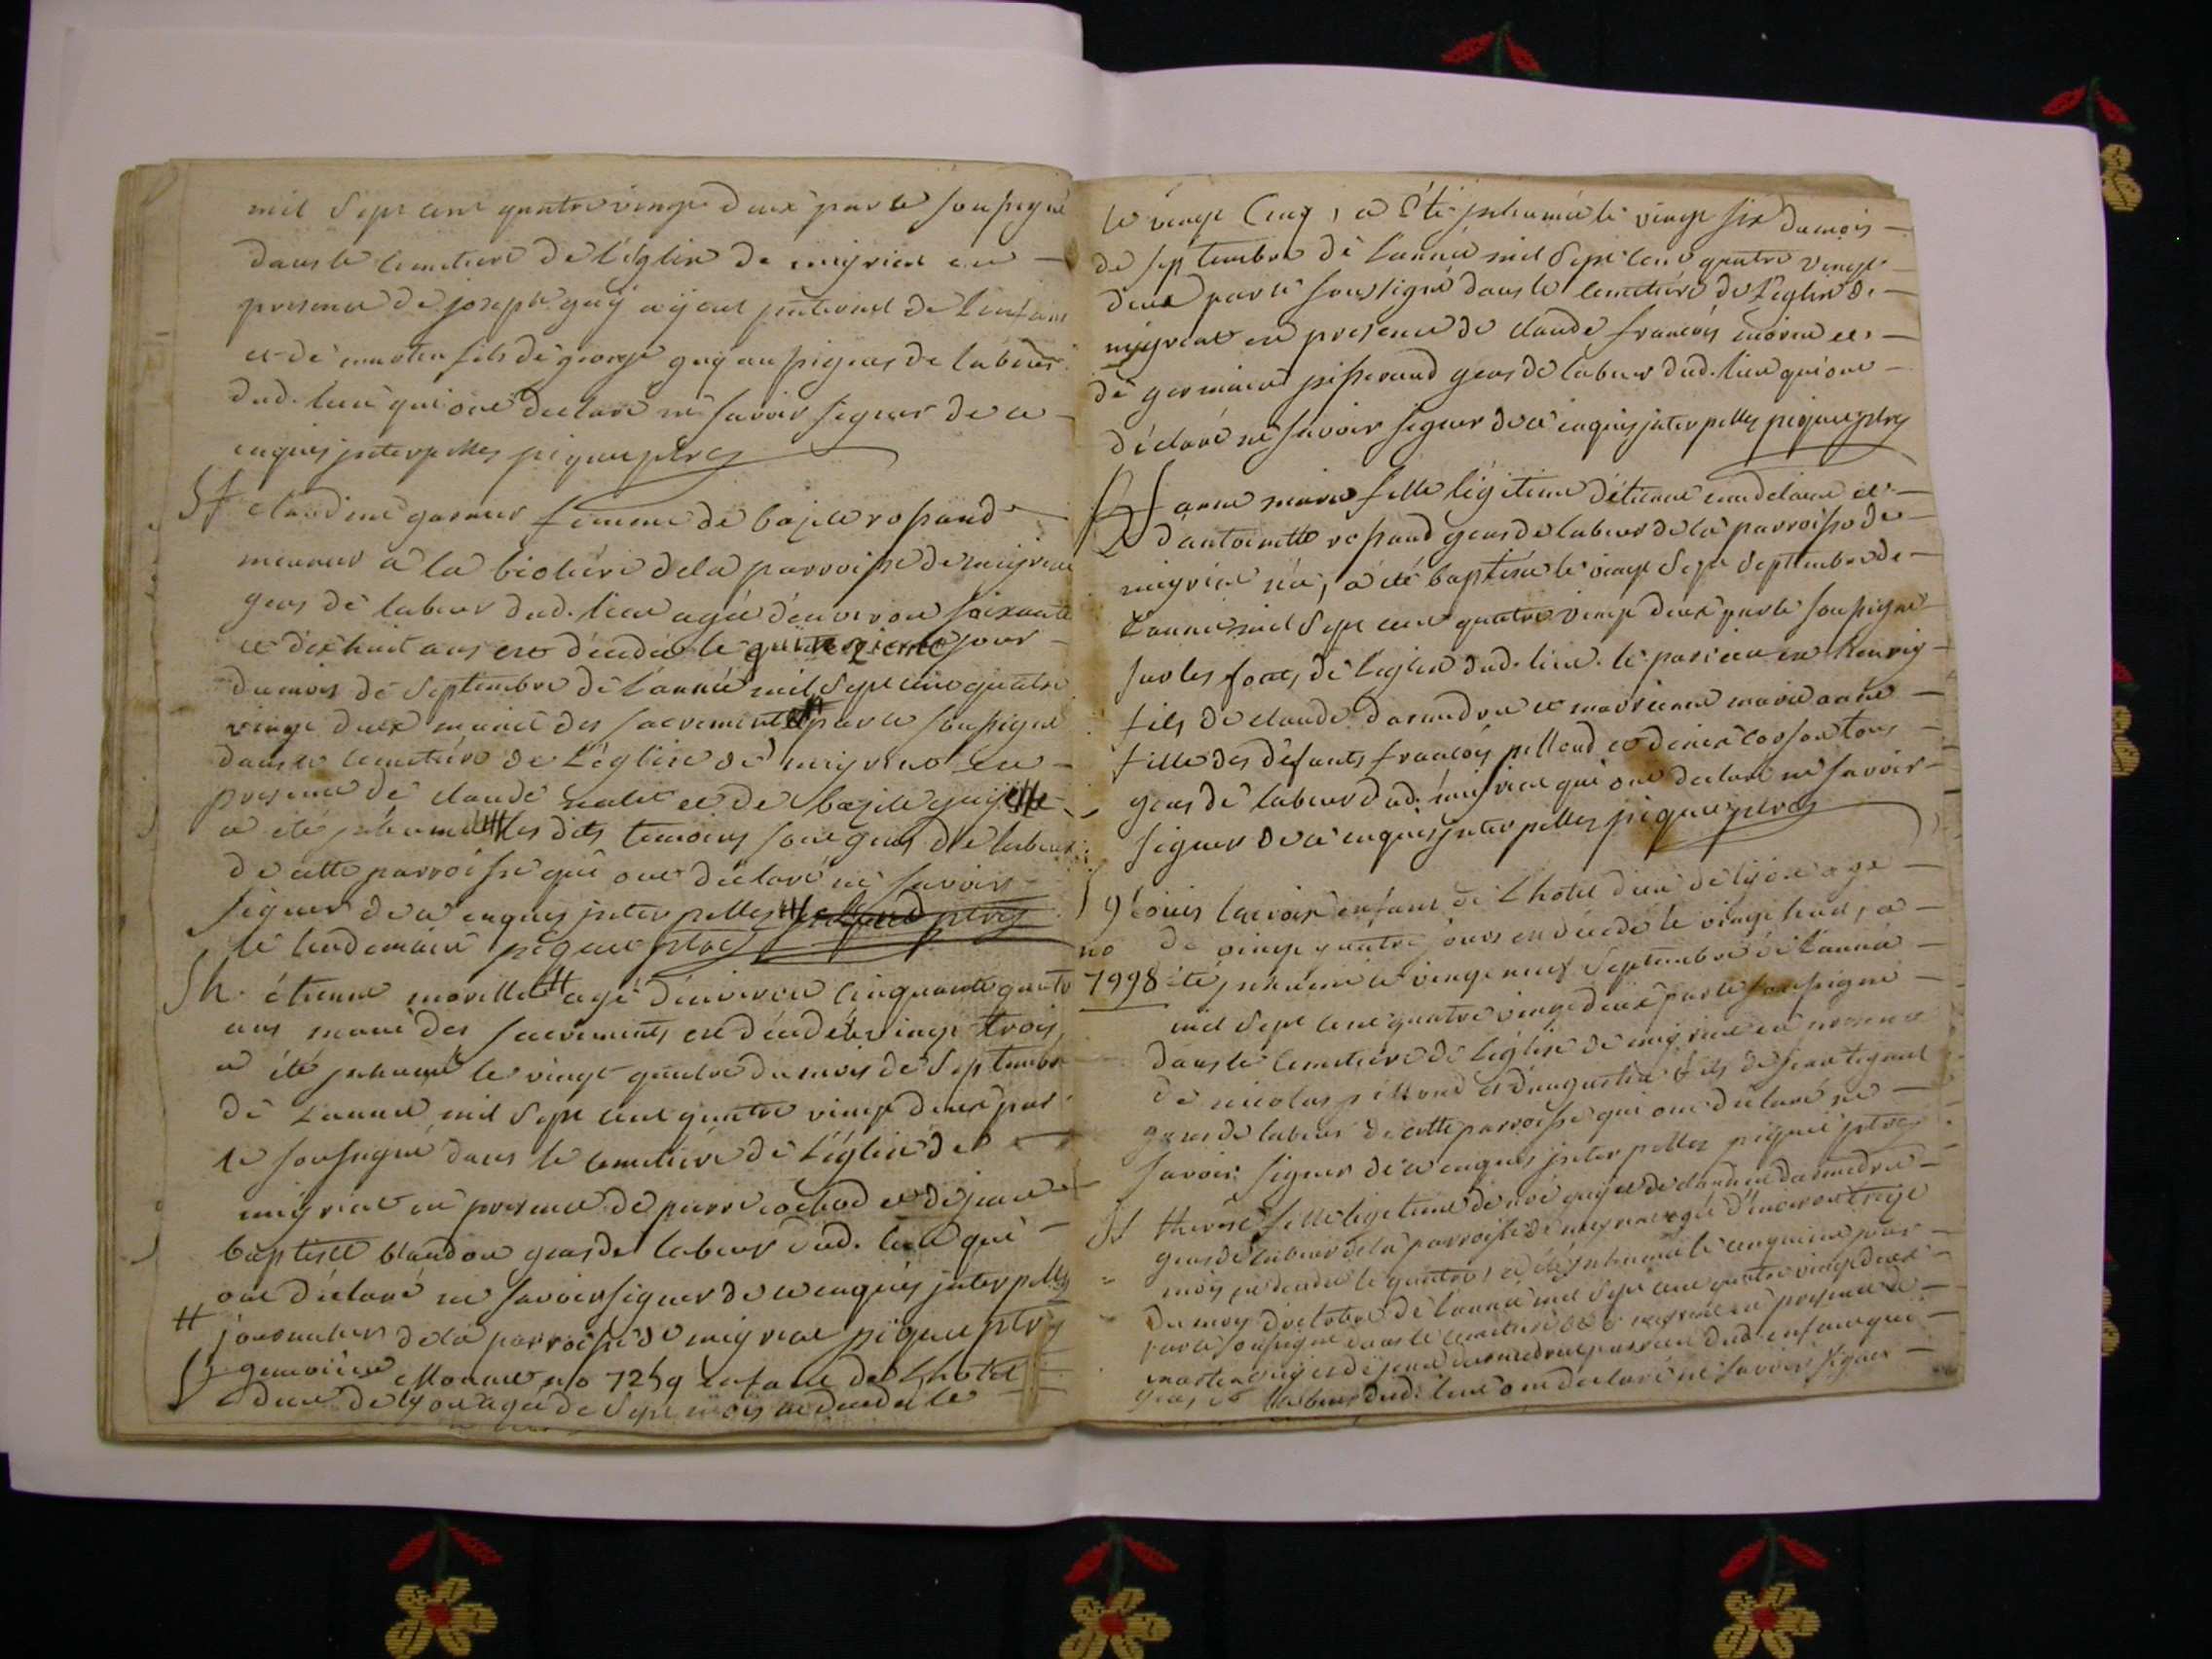 mil sept cent quatre vingt deux par le soussigné
dans le cemetiere de l'église de meyriat en
presence de joseph guy ayeul paternel de l'enfant
et de martin fils de george guy aussi gens de labeur
dud. lieu qui ont declaré ne savoir signer de ce
enquis interpellés piquet ptre
Sf claudine garnier femme de bazile ropand
meunier à la biolière de la parroisse de meyriat
gens de labeur dud. lieu agée d'environ soixante
et dix huit ans est décédée le quinzieme jour
du mois de septembre de l'année mil sept cent quatre
vingt deux munie des sacrements # par le soussigné
dans le cemetiére de l'église de meyriat en
presence de claude et de bazile guy #
a été inhumée # les dits temoins sont gens de labeur
de cette parroisse qui ont déclaré ne savoir
signer de ce enquis interpellés #
le lendemain piquet ptre
Sh. étienne morillet # agé d'environ cinquante quatre
ans muni des sacrements est décédé le vingt trois,
a été inhumé le vingt quatre du mois de septembre
de l'année mil sept cent quatre vingt deux par
le soussigné dans le cemetiére de l'église de
meyriat en presence de pierre cochod et de jean
baptiste blandon gens de labeur dud. lieu qui
ont déclaré ne savoir signer de ce enquis interpellés
# journalier de la parroisse de meyriat piquet ptre
Sf no 7259 enfant de l'hotel
dieu de lyon agée de sept mois décédée le
le vingt cinq, a été inhumée le vingt six du mois
de septembre de l'année mil sept cent quatre vingt
deux par le soussigné dans le cemetiére de l'église de
meyriat en presence de claude françois morin et
de germain pisserand gens de labeur dud. lieu qui ont
déclaré ne savoir signer de ce enquis interpellés piquet ptre
anne marie fille légitime d'étienne et
d'antoinette ropand gens de labeur de la parroisse de
meyriat née, a été baptisée le vingt sept septembre de
l'année mil sept cent quatre vingt deux par le soussigné
sur les fonts de l'eglise dud. lieu. le parrein
fils de claude darmedru et marreinne marie anne
fille des défunts françois pilland et
gens de labeur dud. meyriat qui ont declaré ne savoir
signer de ce enquis interpellés piquet ptre
Sg louis lacroix enfant de l'hotel dieu de lyon agé
no de vingt quatre jours décédé le vingt huit, a
7998 été inhumé le vingt neuf septembre de l'année
mil sept cent quatre vingt deux par le soussigné
dans le cemetiére de l'église de meyriat en presence
de nicolas pilland et d'augustin fils de jean
gens de labeur de cette parroisse qui ont déclaré ne
savoir signer de ce enquis interpellés piquet ptre
Sf therese fille legitime de noé guy et de claudine darmedru
gens de labeur de la parroisse de meyriat agée d'environ treize
mois décédée le quatre, a été inhumée le cinquieme jour
du mois d'octobre de l'année mil sept cent quatre vingt deux
par le soussigné dans le cemetiére de meyriat en presence de
martin guy et de jean darmedru parrein dud. enfant qui
gens de labeur dud. lieu ont declaré ne savoir signer